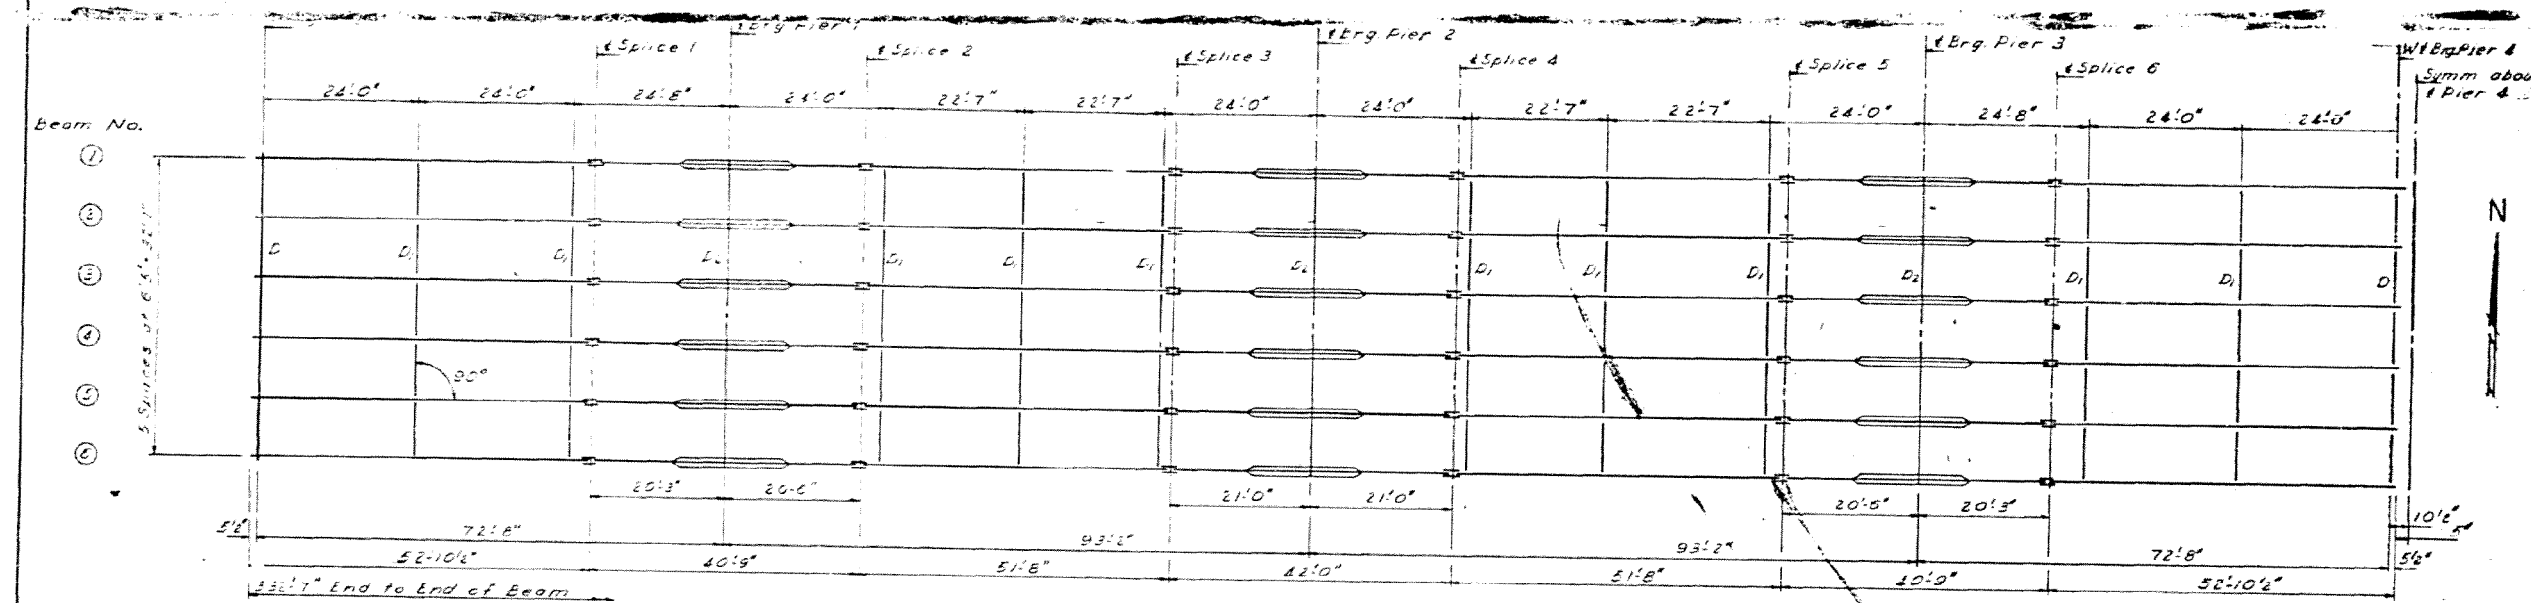 ℄ Brg. Pier 1
℄ Splice 1
℄ Splice 2
℄ Splice 3
℄ Brg. Pier 2
℄ Splice 4
℄ Splice 5
℄ Brg. Pier 3
℄ Splice 6
W ℄ Brg Pier 4
Symm abou
℄ Pier 4
24'-0" 24'-0" 24'-8" 24'-0" 22'-7" 22'-7" 24'-0" 24'-0" 22'-7" 22'-7" 24'-0" 24'-8" 24'-0" 24'-0"
Beam No.
1
2
3
4
5
6
5 Spaces at 6'-5" = 32'-1"
N
D D₁ D₁ D₂ D₁ D₁ D₁ D₂ D₁ D₁ D₁ D₂ D₁ D₁ D
90°
20'-3" 20'-6" 21'-0" 21'-0" 20'-6" 20'-3"
5½" 72'-8" 93'-2" 93'-2" 72'-8" 5½"
10½"
5"
52'-10½" 40'-9" 51'-8" 42'-0" 51'-8" 40'-9" 52'-10½"
332'-7" End to End of Beam